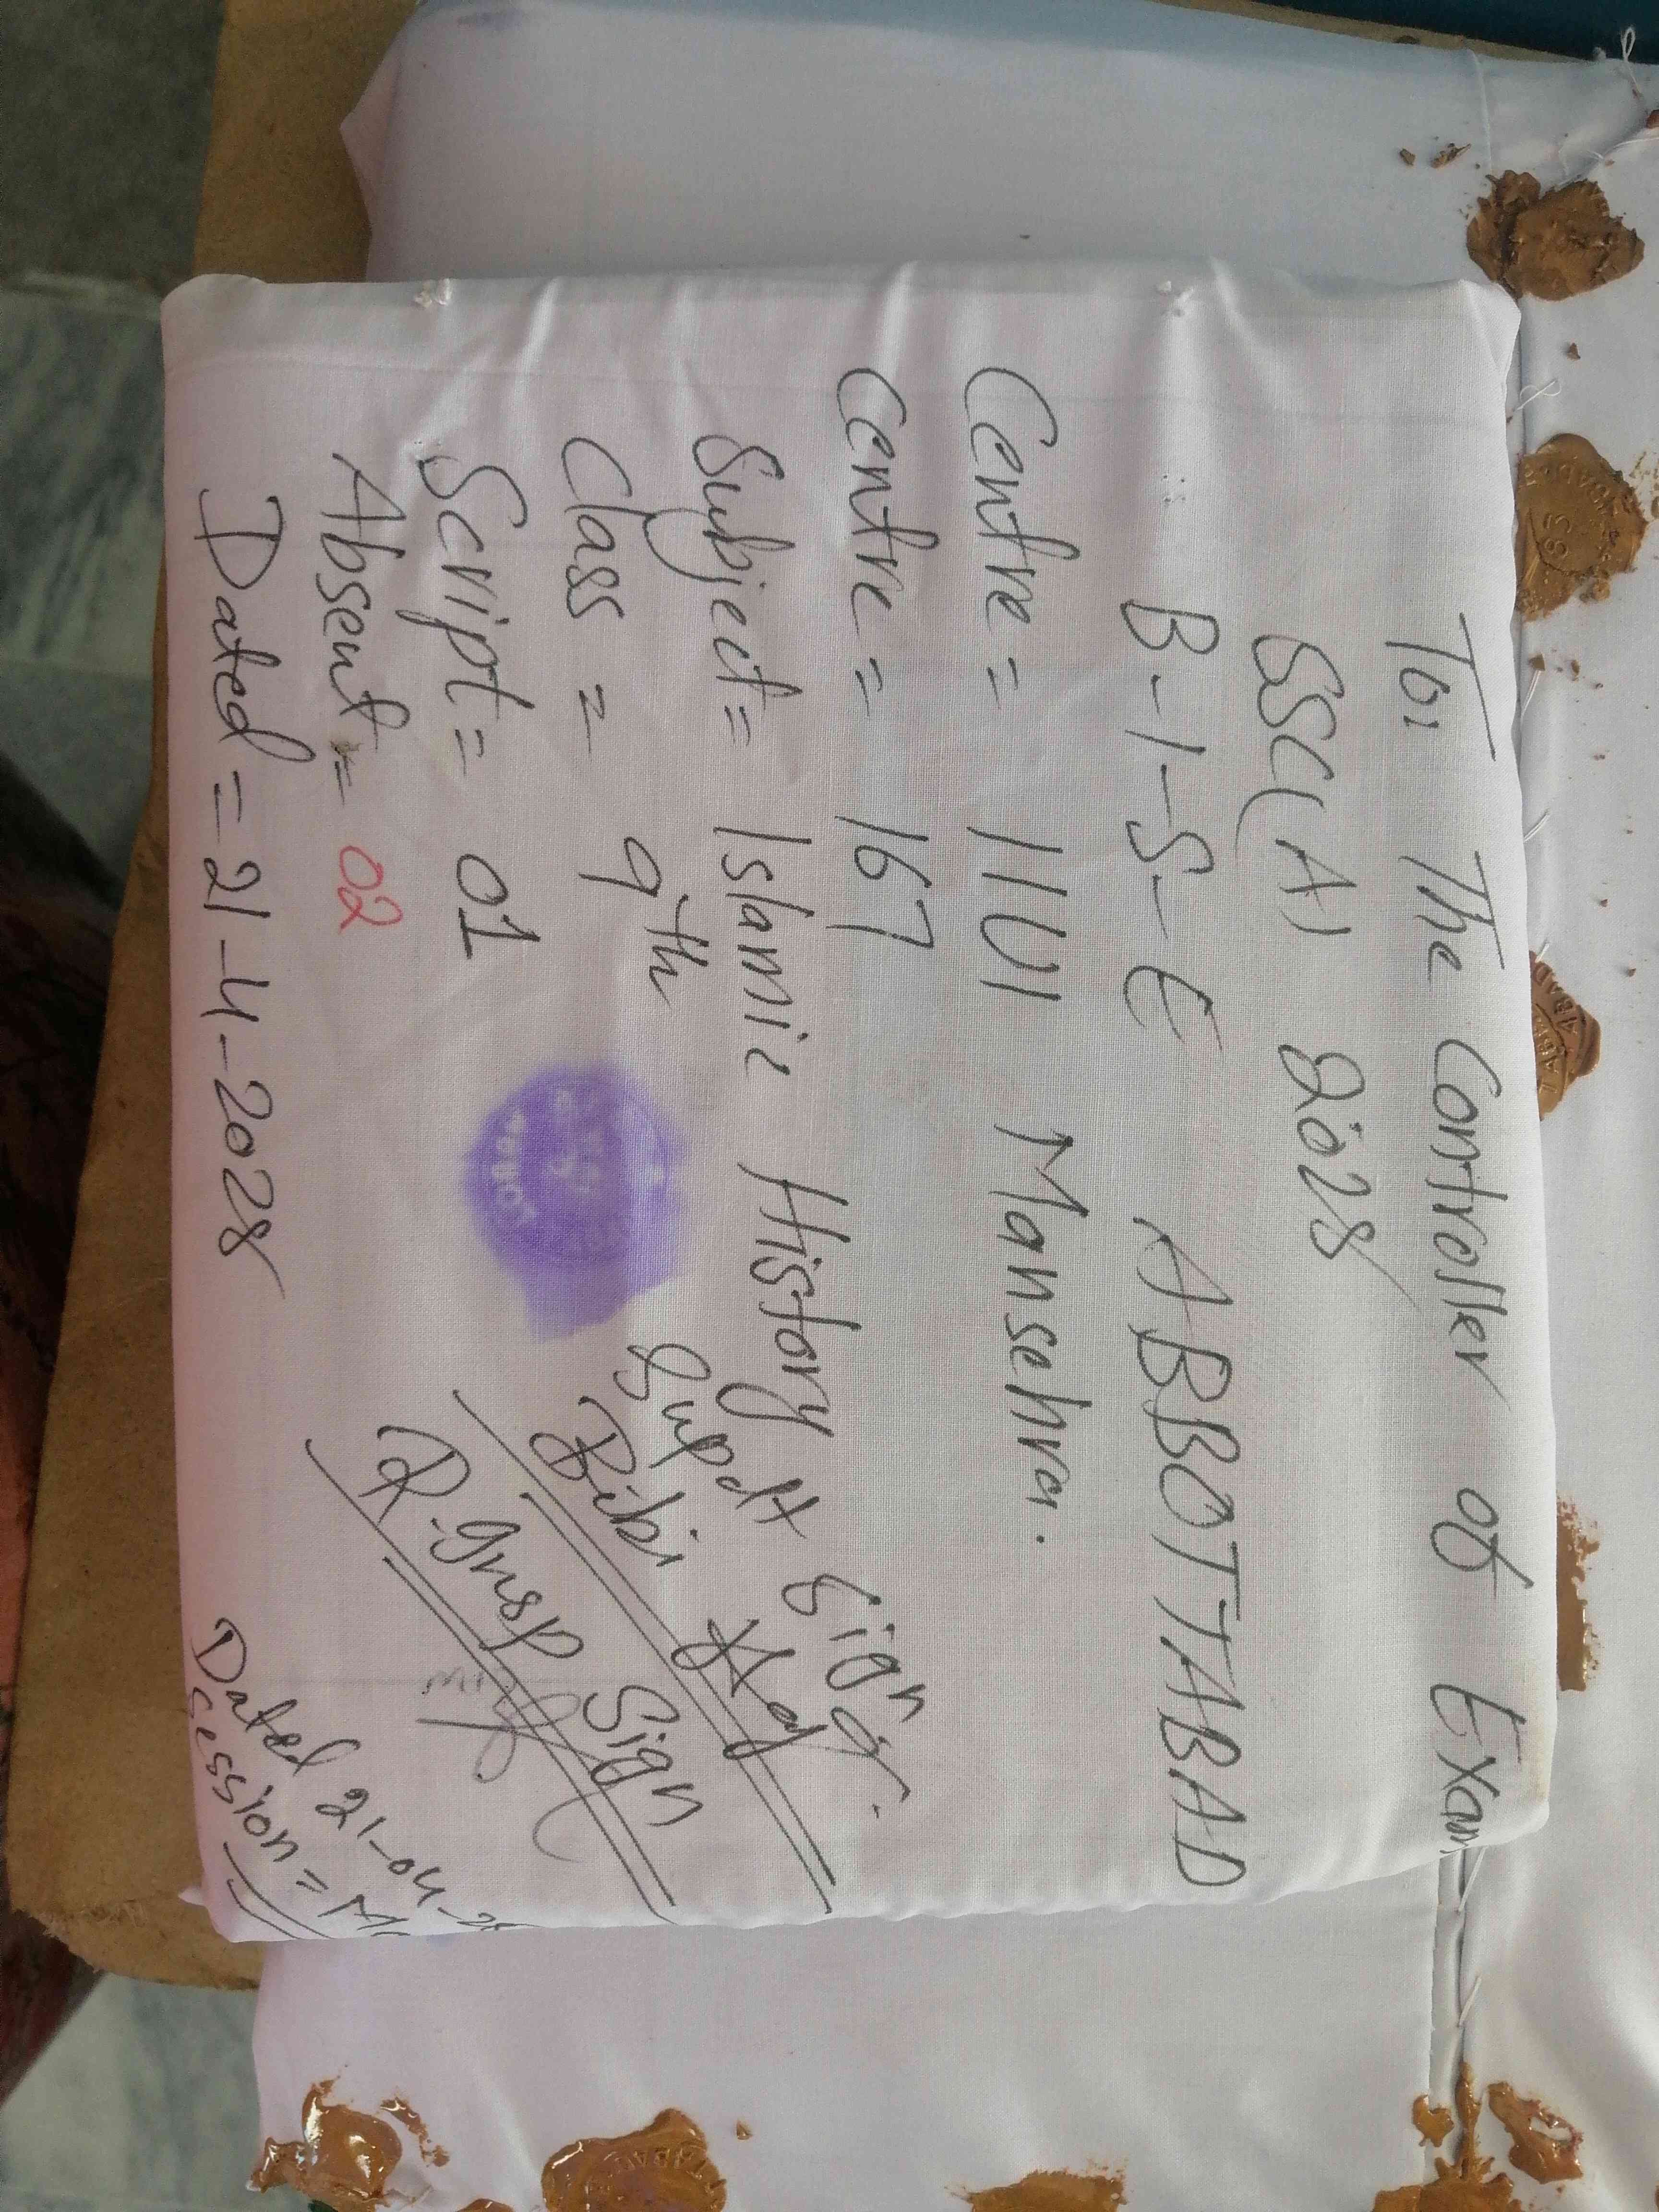 To: The Controller of Exam
SSC(A) 2028
B-I-S-E ABBOTTABAD
Centre = IIUI Mansehra.
Centre = 167
Subject = Islamic History
Class = 9th
Script = 01
Absent = 02
Dated = 21-4-2028
Supdt Sign
Bibi
D. Supd Sign
Dated 21-04-28
Session =